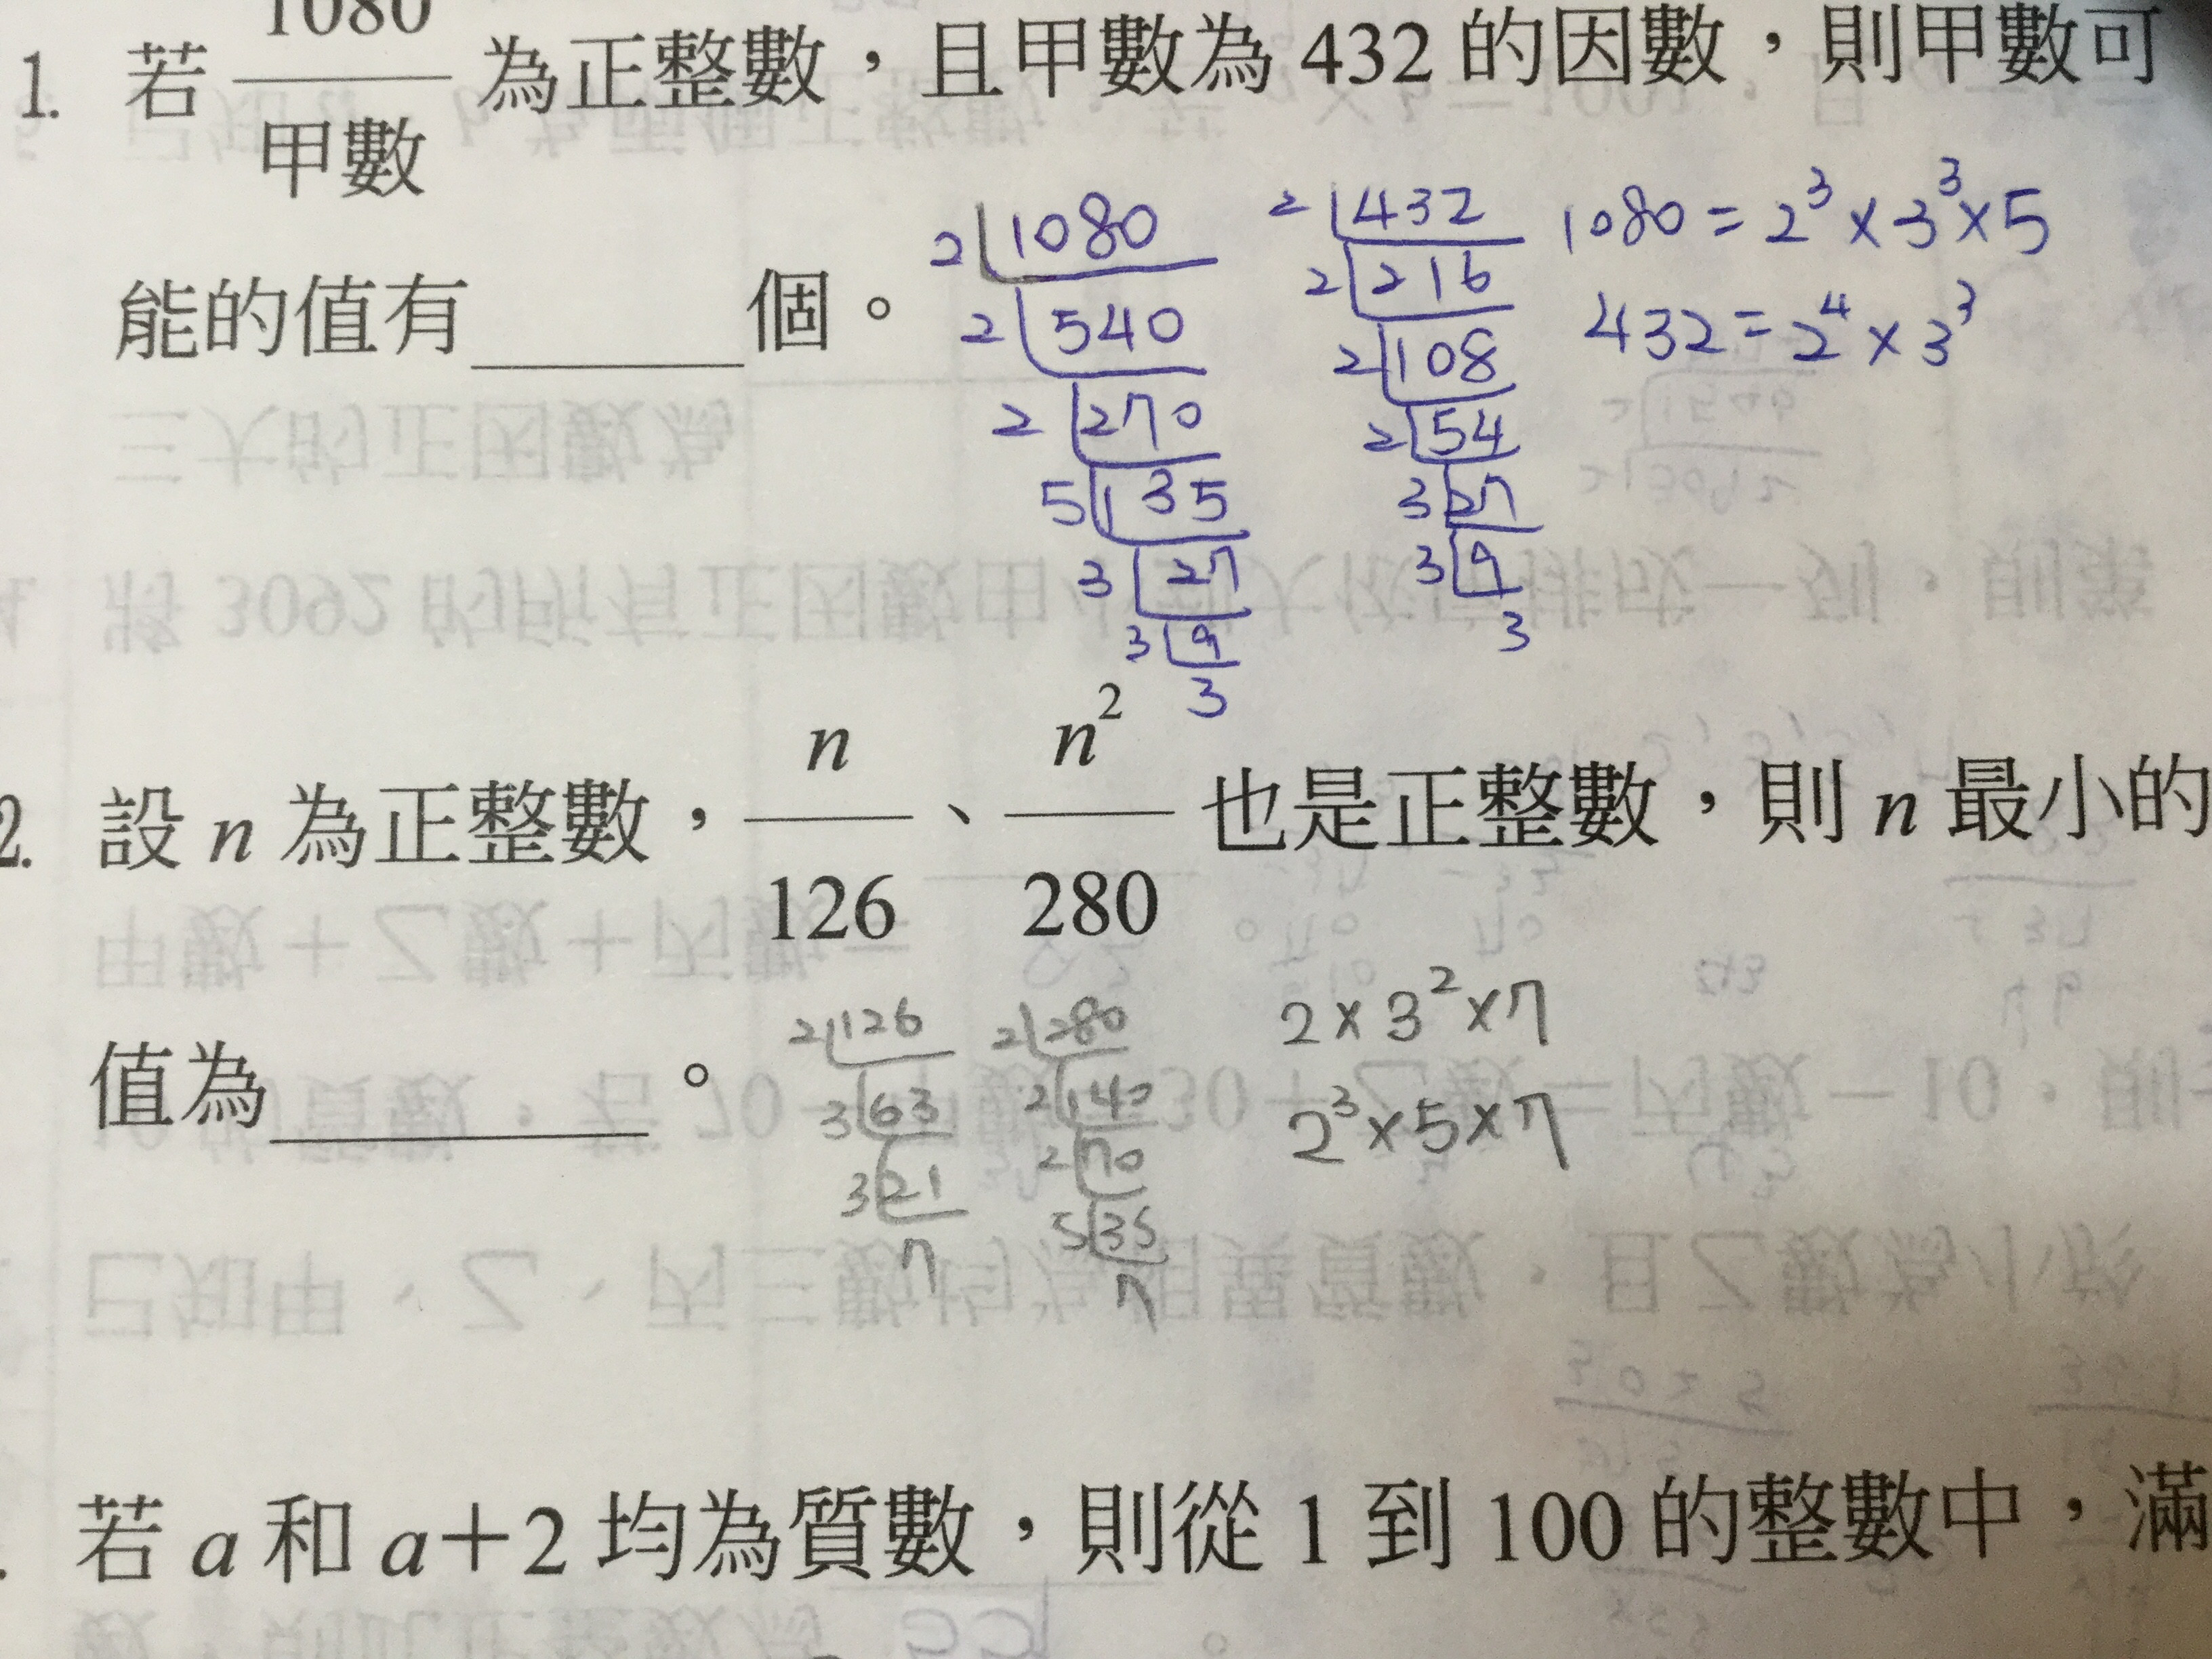 1. 若 1080/甲數 為正整數，且甲數為 432 的因數，則甲數可
能的值有______個。
2 1080
2 540
2 270
5 135
3 27
3 9
3
2 432
2 216
2 108
2 54
3 27
3 9
3
1080 = 2³ × 3³ × 5
432 = 2⁴ × 3³
2. 設 n 為正整數，n/126、n²/280 也是正整數，則 n 最小的
值為________。
2 126
3 63
3 21
7
2 280
2 140
2 70
5 35
7
2 × 3² × 7
2³ × 5 × 7
. 若 a 和 a+2 均為質數，則從 1 到 100 的整數中，滿